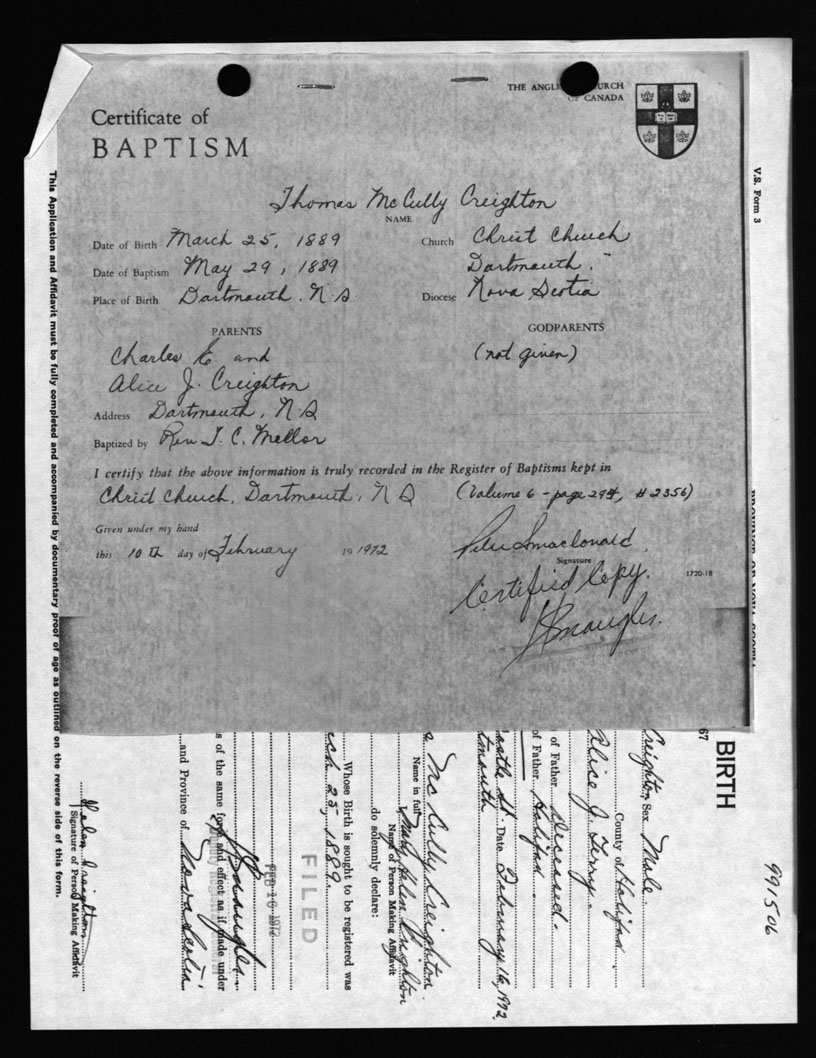 THE ANGLICAN CHURCH
OF CANADA
Certificate of
BAPTISM
Thomas McCully Creighton
NAME
Date of Birth March 25, 1889
Church Christ Church
Date of Baptism May 29, 1889
Dartmouth.
Place of Birth Dartmouth. N.S
Diocese Nova Scotia
PARENTS
GODPARENTS
Charles E. and
(not given)
Alice J. Creighton
Address Dartmouth, N.S
Baptized by Rev T. C. Mellor
I certify that the above information is truly recorded in the Register of Baptisms kept in
Christ Church, Dartmouth, N S (Volume 6 - page 294, # 2356)
Given under my hand
this 10th day of February 19 1972
Signature
1720-18
Certified Copy.
V.S. Form 3
This Application and Affidavit must be fully completed and accompanied by documentary proof of age as outlined on the reverse side of this form.
67
BIRTH
991506
Creighton Sex Male
County of Halifax
Alice J.
of Father Deceased
of Father Halifax
St. Date February 16, 1972
tmouth
Mc Cully Creighton
Name in full
Mary Helen Creighton
Name of Person Making Affidavit
do solemnly declare:
Whose Birth is sought to be registered was
rch 25, 1889.
FILED
FEB 16 1972
s of the same force and effect as if made under
and Province of Nova Scotia
Helen Creighton
Signature of Person Making Affidavit